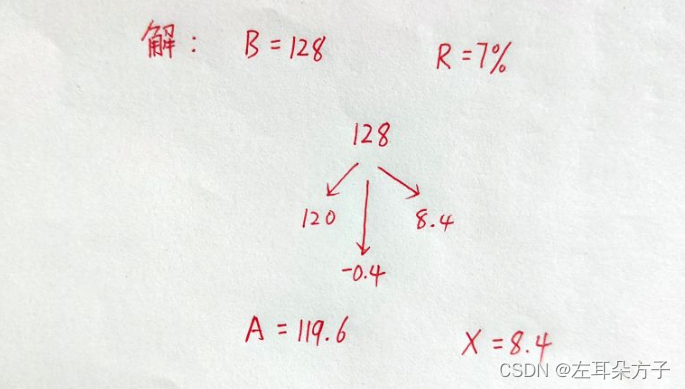 解： B = 128 R = 7%
128
120 8.4
-0.4
A = 119.6 X = 8.4
CSDN @左耳朵方子